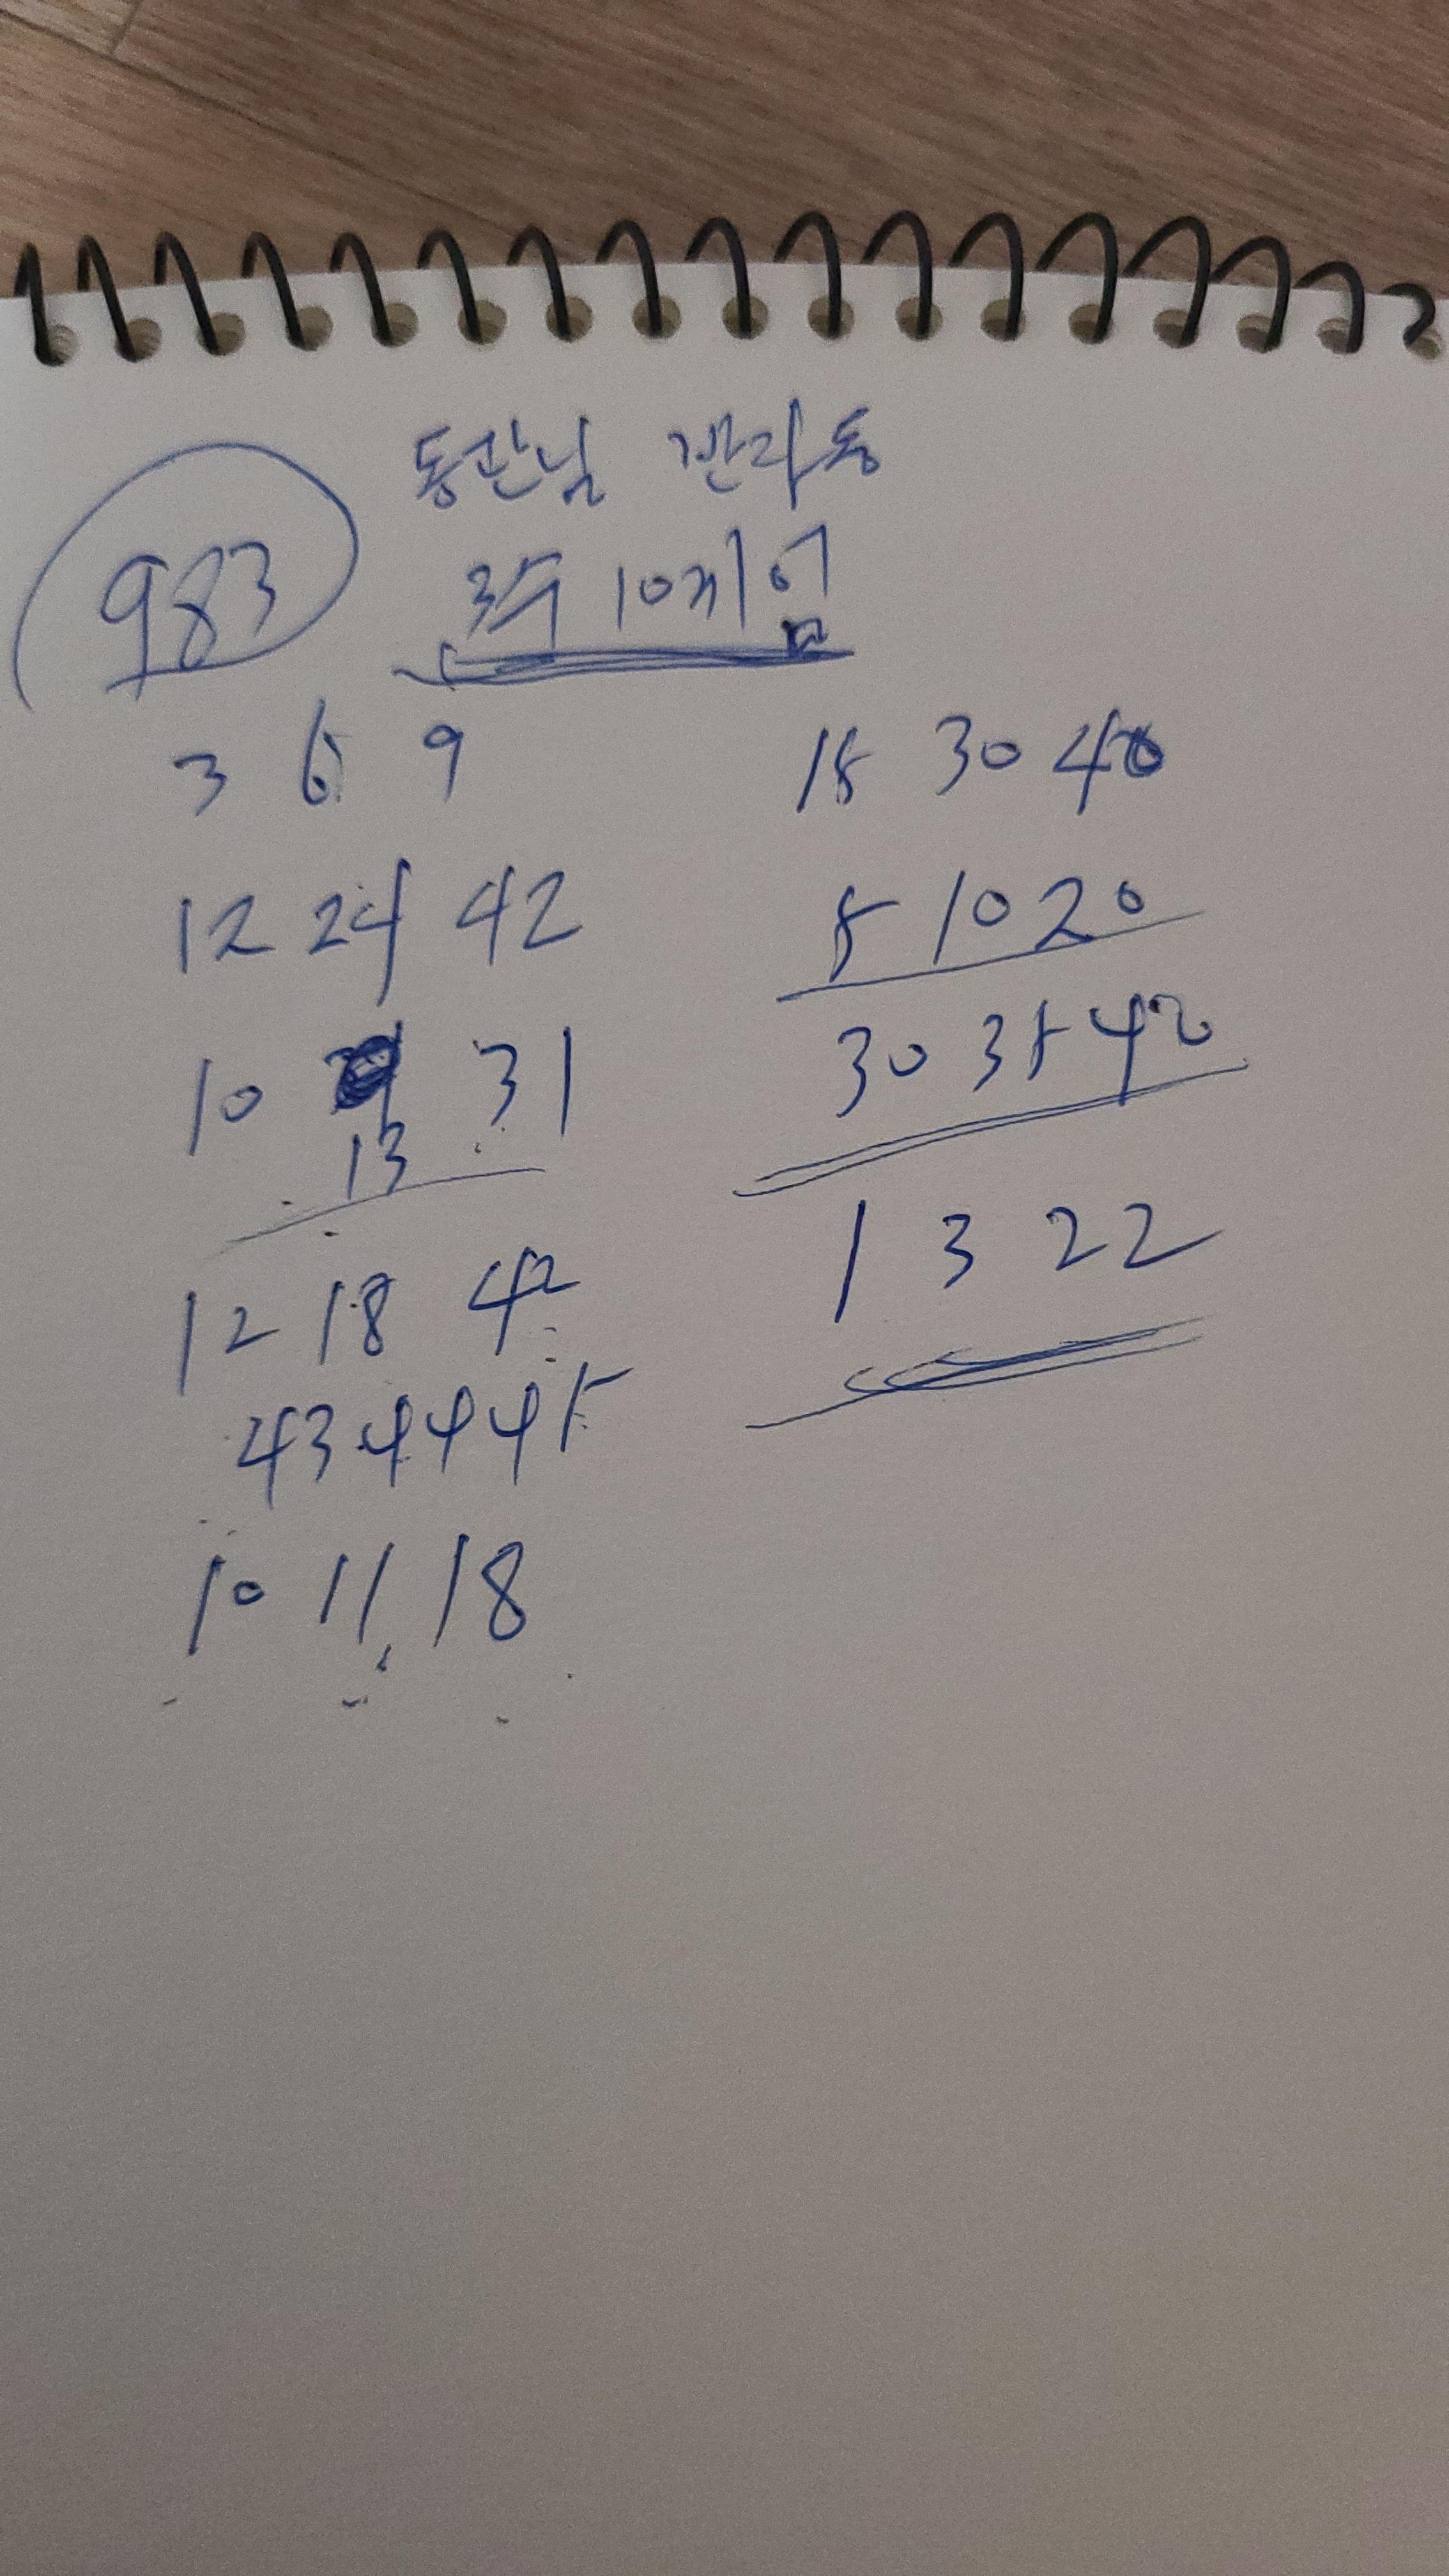 983
3수 10게임
3 6 9
12 24 42
10 13 31
12 18 42
43 44 45
10 11 18
15 30 40
5 10 20
30 35 42
1 3 22